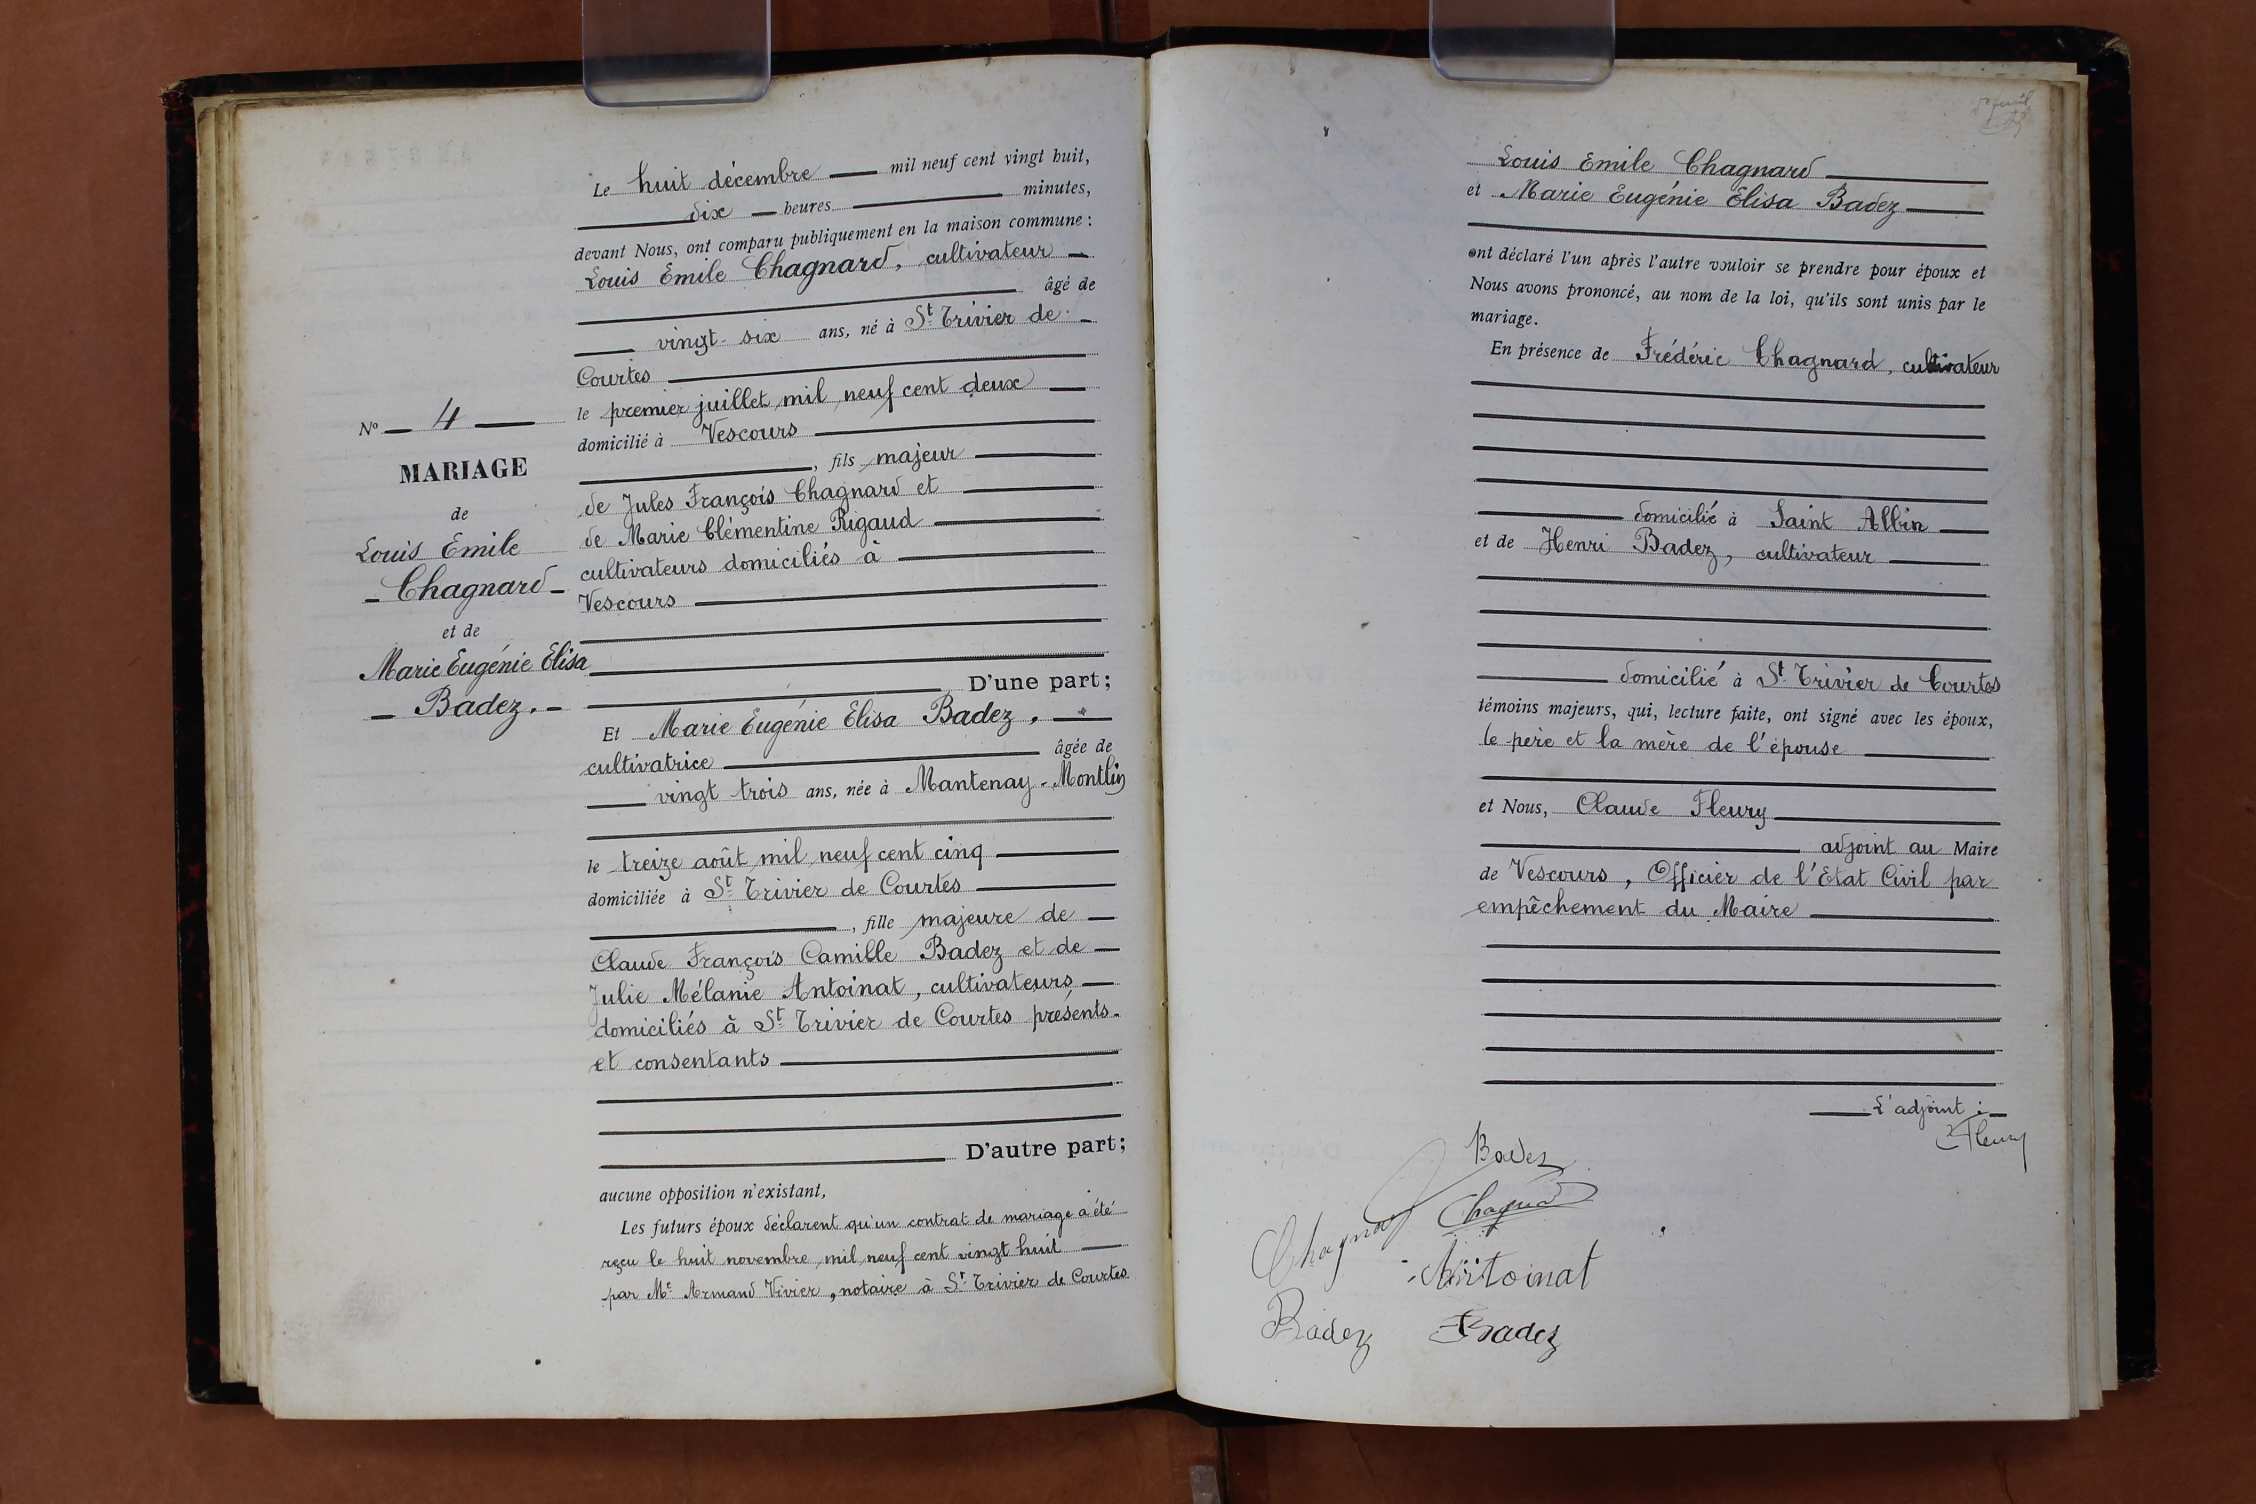 Le huit décembre mil neuf cent vingt huit,
dix heures minutes,
devant Nous, ont comparu publiquement en la maison commune :
Louis Emile Chagnard, cultivateur
âgé de
vingt-six ans, né à St Trivier de
Courtes
le premier juillet mil neuf cent deux
domicilié à Vescours
, fils majeur
de Jules François Chagnard et
de Marie Clémentine Rigaud
cultivateurs domiciliés à
Vescours
D'une part;
Et Marie Eugénie Elisa Badez,
cultivatrice âgée de
vingt trois ans, née à Mantenay-Montlin
le treize août mil neuf cent cinq
domiciliée à St Trivier de Courtes
, fille majeure de
Claude François Camille Badez et de
Julie Mélanie Antoinat, cultivateurs
domiciliés à St Trivier de Courtes présents
et consentants
D'autre part;
aucune opposition n'existant,
Les futurs époux déclarent qu'un contrat de mariage a été
reçu le huit novembre mil neuf cent vingt huit
par Me Armand Vivier, notaire à St Trivier de Courtes
No 4
MARIAGE
de
Louis Emile
Chagnard
et de
Marie Eugénie Elisa
Badez.
Louis Emile Chagnard
et Marie Eugénie Elisa Badez
ont déclaré l'un après l'autre vouloir se prendre pour époux et
Nous avons prononcé, au nom de la loi, qu'ils sont unis par le
mariage.
En présence de Frédéric Chagnard, cultivateur
domicilié à Saint Albin
et de Henri Badez, cultivateur
domicilié à St Trivier de Courtes
témoins majeurs, qui, lecture faite, ont signé avec les époux,
le père et la mère de l'épouse
et Nous, Claude Fleury
adjoint au Maire
de Vescours, Officier de l'Etat Civil par
empêchement du Maire
L'adjoint :
Fleury
Badez
Chagnard
Chagnard
Antoinat
Badez
Badez